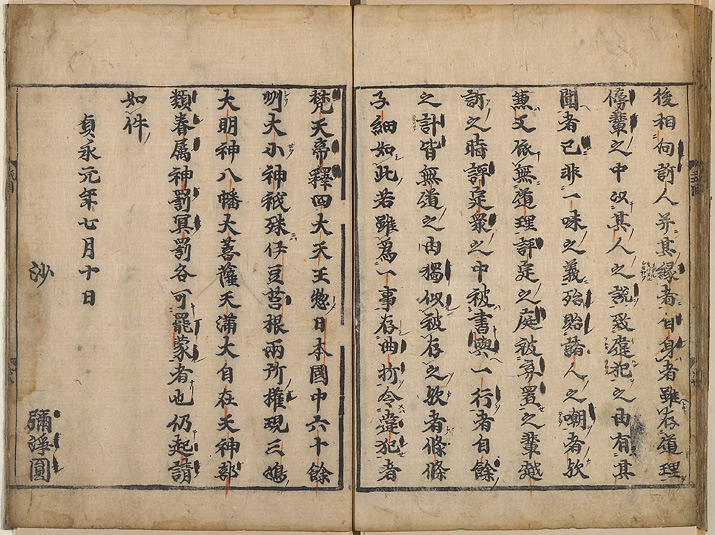 後相向訴人并其縁者自身者雖存道理
傍輩之中以其人之説致違犯之由有其
聞者已非一味之義殆貽諸人之嘲者歟
兼又依無道理評定之庭被弃置之輩越
訴之時評定衆之中被書與一行者自餘
之計皆無道之由獨似被存之歟者條條
子細如此若雖爲一事存曲折令違犯者
梵天帝釋四大天王惣日本國中六十餘
州大小神祇殊伊豆筥根兩所權現三嶋
大明神八幡大菩薩天滿大自在天神部
類眷属神罰冥罰各可罷蒙者也仍起請
如件
貞永元年七月十日
沙 彌淨圓